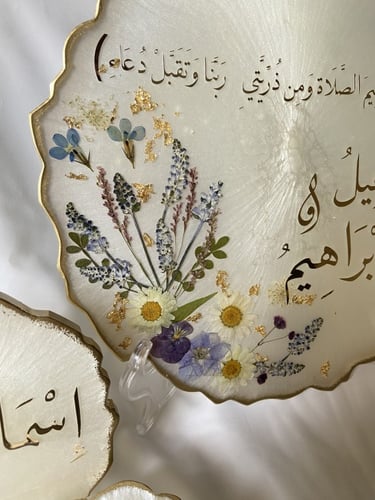 يمَ الصَّلَاةِ وَمِن ذُرِّيَّتِي رَبَّنَا وَتَقَبَّلْ دُعَاءِ )
يلُ
و
بْرَاهِيمُ
إِسْمَا